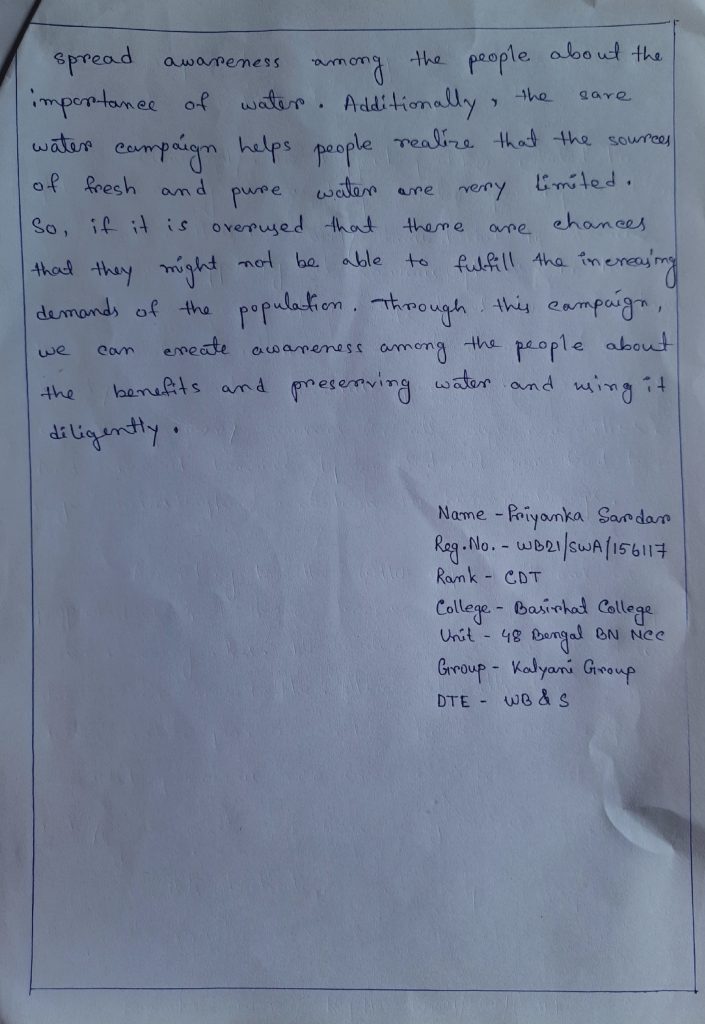 spread awareness among the people about the
importance of water. Additionally, the save
water campaign helps people realize that the sources
of fresh and pure water are very limited.
So, if it is overused that there are chances
that they might not be able to fulfill the increasing
demands of the population. Through this campaign,
we can create awareness among the people about
the benefits and preserving water and using it
diligently.
Name - Priyanka Sardar
Reg.No. - WB21/SWA/156117
Rank - CDT
College - Basirhat College
Unit - 48 Bengal BN NCC
Group - Kalyani Group
DTE - WB & S